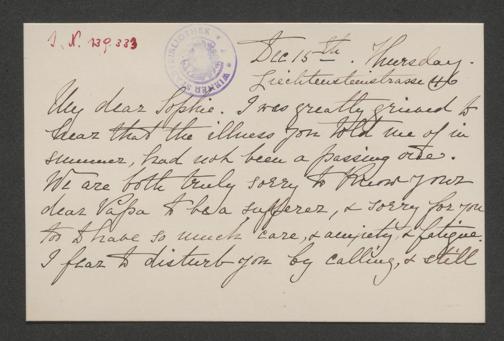 I. N. 139.333
WIENER STADTBIBLIOTHEK
Dec 15th. Thursday.
Liechtensteinstrasse 46
My dear Sophie. I was greatly grieved to
hear that the illness you told me of in
summer, had not been a passing one.
We are both truly sorry to know your
dear Papa to be a sufferer, & sorry for you
too to have so much care, & anxiety, & fatigue.
I fear to disturb you by calling, & still